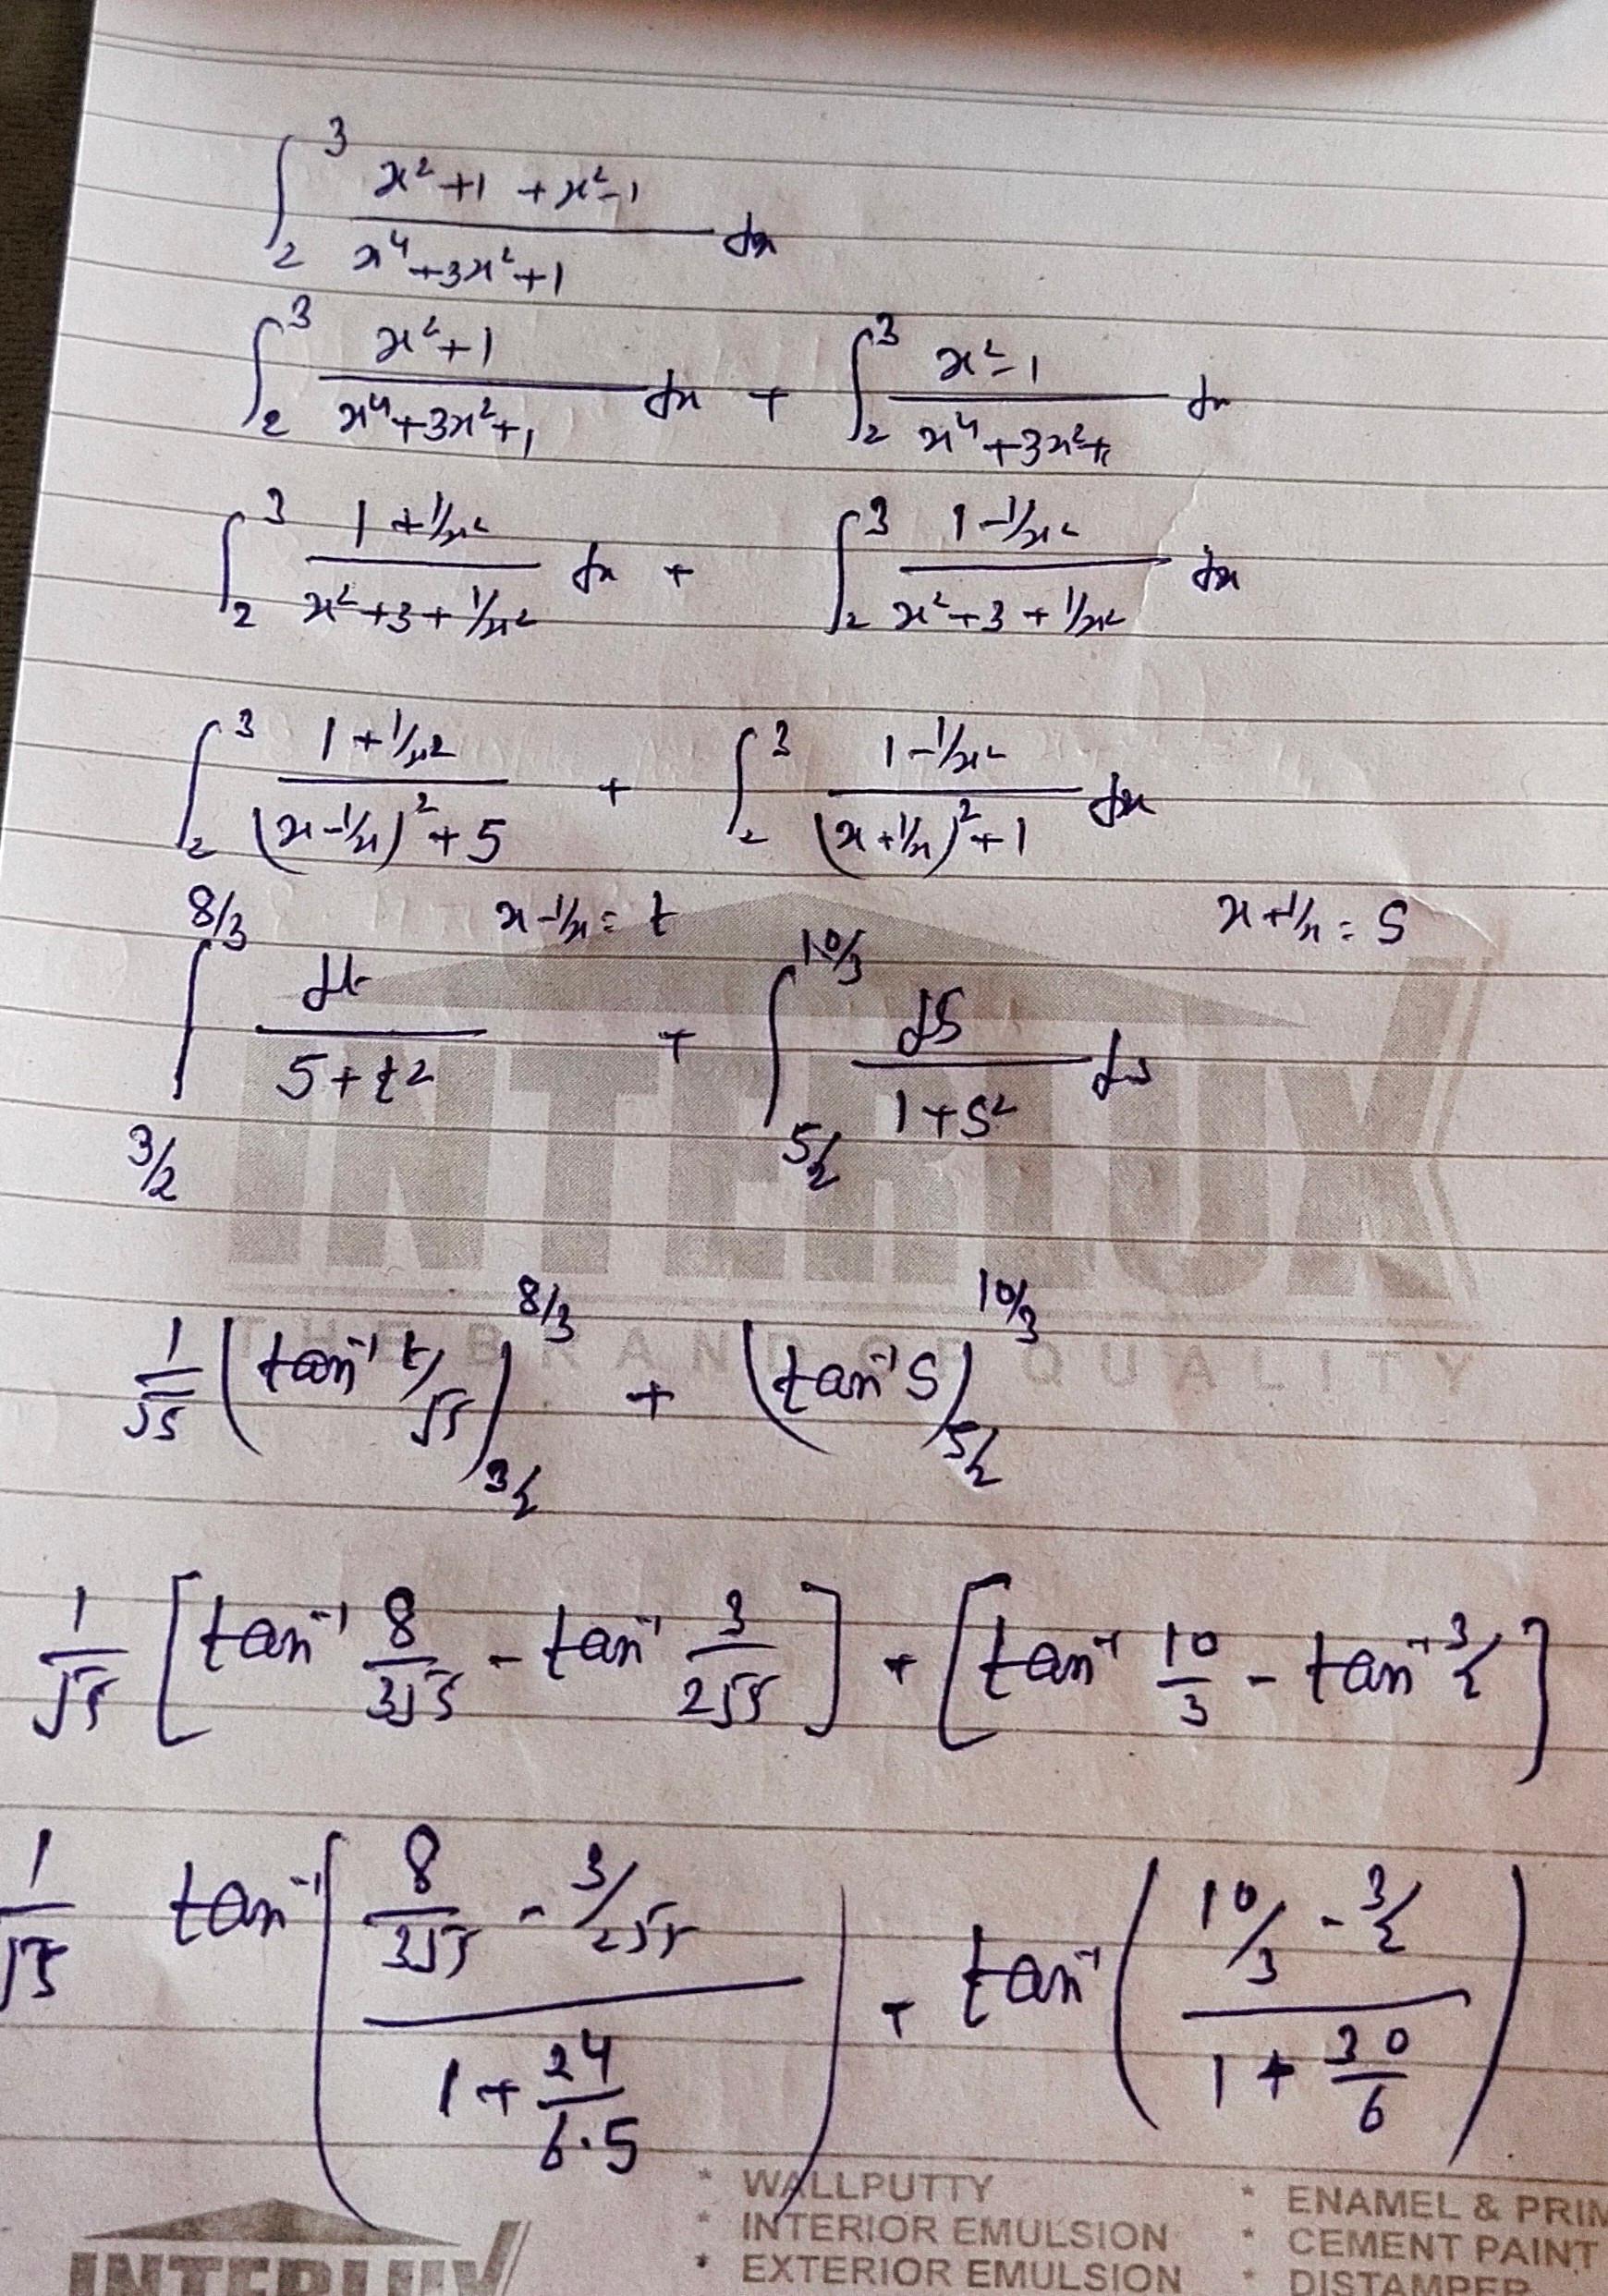 ∫₂³ (x²+1 + x²-1)/(x⁴+3x²+1) dx
∫₂³ (x²+1)/(x⁴+3x²+1) dx + ∫₂³ (x²-1)/(x⁴+3x²+1) dx
∫₂³ (1+1/x²)/(x²+3+1/x²) dx + ∫₂³ (1-1/x²)/(x²+3+1/x²) dx
∫₂³ (1+1/x²)/((x-1/x)²+5) + ∫₂³ (1-1/x²)/((x+1/x)²+1) dx
x-1/x = t x+1/x = S
∫_{3/2}^{8/3} dt/(5+t²) + ∫_{5/2}^{10/3} dS/(1+S²) ds
INTERLUX
THE BRAND OF QUALITY
1/√5 (tan⁻¹ t/√5)_{3/2}^{8/3} + (tan⁻¹ S)_{5/2}^{10/3}
1/√5 [tan⁻¹ 8/(3√5) - tan⁻¹ 3/(2√5)] + [tan⁻¹ 10/3 - tan⁻¹ 3/2]
1/√5 tan⁻¹((8/(3√5) - 3/(2√5))/(1+24/(6·5))) + tan⁻¹((10/3 - 3/2)/(1+30/6))
INTERLUX
* WALLPUTTY
* INTERIOR EMULSION
* EXTERIOR EMULSION
* ENAMEL & PRIM
* CEMENT PAINT
* DISTAMPER